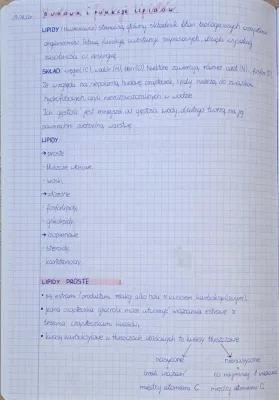 BUDOWA I FUNKCJE LIPIDÓW
LIPIDY (tłuszczowce) stanowią główny składnik błon biologicznych wszystkich
organizmów. Pełnią funkcję substancji zapasowych, dzięki wysokiej
zawartości w energię
SKŁAD: węgiel (C), wodór (H), tlen (O). Niektóre zawierają również azot (N), fosfor (P)
Ze względu na niepolarną budowę cząsteczek, lipidy należą do związków
hydrofobowych, czyli nierozpuszczalnych w wodzie.
Ich gęstość jest mniejsza od gęstości wody, dlatego tworzą na jej
powierzchni warstwę
LIPIDY
→ proste
- tłuszcze właściwe
- woski
→ złożone
- fosfolipidy
- glikolipidy
→ izoprenowe
- steroidy
- karotenoidy
LIPIDY PROSTE
• są estrami (produktami reakcji alkoholu z kwasem karboksylowym)
• jedna cząsteczka glicerolu może utworzyć wiązania estrowe z
trzema cząsteczkami kwasów
• kwasy karboksylowe w tłuszczach właściwych to kwasy tłuszczowe
nasycone nienasycone
brak wiązań co najmniej 1 wiązanie
między atomami C między atomami C